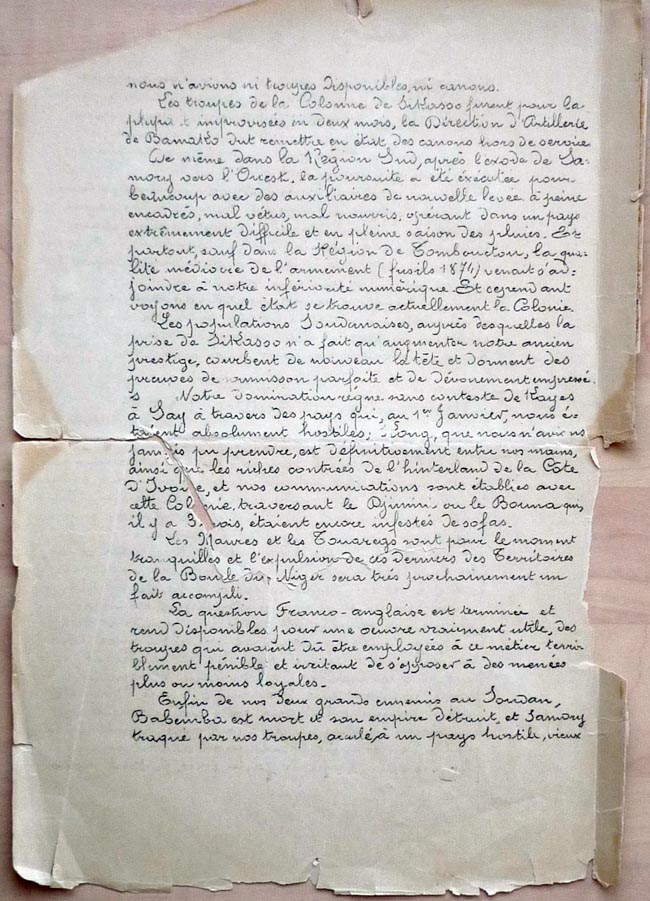 nous n'avions ni troupes disponibles, ni canons.
Les troupes de la Colonne de Sikasso furent pour la
plupart improvisées en deux mois, la Direction d'Artillerie
de Bamako dut remettre en état des canons hors de service
De même dans la Région Sud, après l'exode de Sa-
mory vers l'Ouest, la poursuite a été exécutée pour
beaucoup avec des auxiliaires de nouvelle levée à peine
encadrés, mal vêtus, mal nourris, opérant dans un pays
extrêmement difficile et en pleine saison des pluies. Et
partout, sauf dans la Région de Tombouctou, la qua-
lité médiocre de l'armement (fusils 1874) venait s'ad-
joindre à notre infériorité numérique. Et cependant
voyons en quel état se trouve actuellement la Colonie.
Les populations Soudanaises, auprès desquelles la
prise de Sikasso n'a fait qu'augmenter notre ancien
prestige, courbent de nouveau la tête et donnent des
preuves de soumission parfaite et de dévouement empressé.
Notre domination règne sans conteste de Kayes
à Say à travers des pays qui, au 1er Janvier, nous é-
taient absolument hostiles; Kong, que nous n'avions
jamais pu prendre, est définitivement entre nos mains,
ainsi que les riches contrées de l'hinterland de la Côte
d'Ivoire, et nos communications sont établies avec
cette Colonie, traversant le Djimini ou le Bouna qui,
il y a 3 mois, étaient encore infestés de sofas.
Les Maures et les Touaregs sont pour le moment
tranquilles et l'expulsion de ces derniers des Territoires
de la Boucle du Niger sera très prochainement un
fait accompli.
La question Franco-anglaise est terminée et
rend disponibles pour une œuvre vraiment utile, des
troupes qui avaient dû être employées à ce métier terri-
blement pénible et irritant de s'opposer à des menées
plus ou moins loyales.
Enfin de nos deux grands ennemis au Soudan,
Babemba est mort et son empire détruit, et Samory
traqué par nos troupes, acculé à un pays hostile, vieux